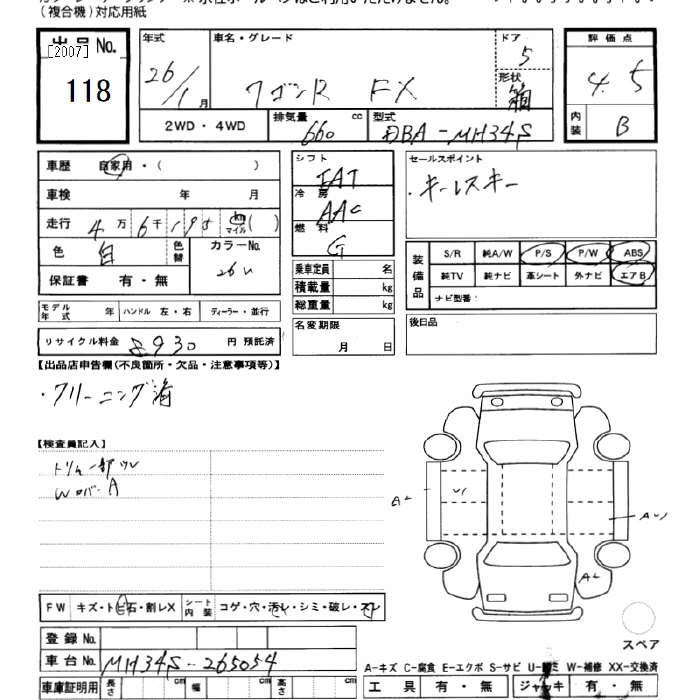 (複合機)対応用紙
出品No.
[2007]
118
年式
26/1月
車名・グレード
ワゴンR FX
ドア
5
形状
箱
評価点
4.5
内装
B
2WD・4WD
排気量
660 cc
型式
DBA-MH34S
車歴 自家用・( )
車検 年 月
走行 4万6千195 km マイル( )
色 白 色替 カラーNo. 26U
保証書 有・無
モデル年式 年 ハンドル 左・右 ディーラー・並行
リサイクル料金 8930 円 預託済
シフト
IAT
冷房
AAC
燃料
G
乗車定員 名
積載量 kg
総重量 kg
名変期限
月 日
セールスポイント
・キーレスキー
装備品
S/R 純A/W P/S P/W ABS
純TV 純ナビ 革シート 外ナビ エアB
ナビ型番:
後日品
【出品店申告欄(不良箇所・欠品・注意事項等)】
・クリーニング済
【検査員記入】
トリム一部ワレ
A
FW キズ・トビ石・割レX シート内装 コゲ・穴・汚レ・シミ・破レ・スレ
登録No.
車台No. MH34S-265054
車庫証明用 長さ 幅 高さ
スペア
A-キズ C-腐食 E-エクボ S-サビ W-補修 XX-交換済
工具 有・無 ジャッキ 有・無